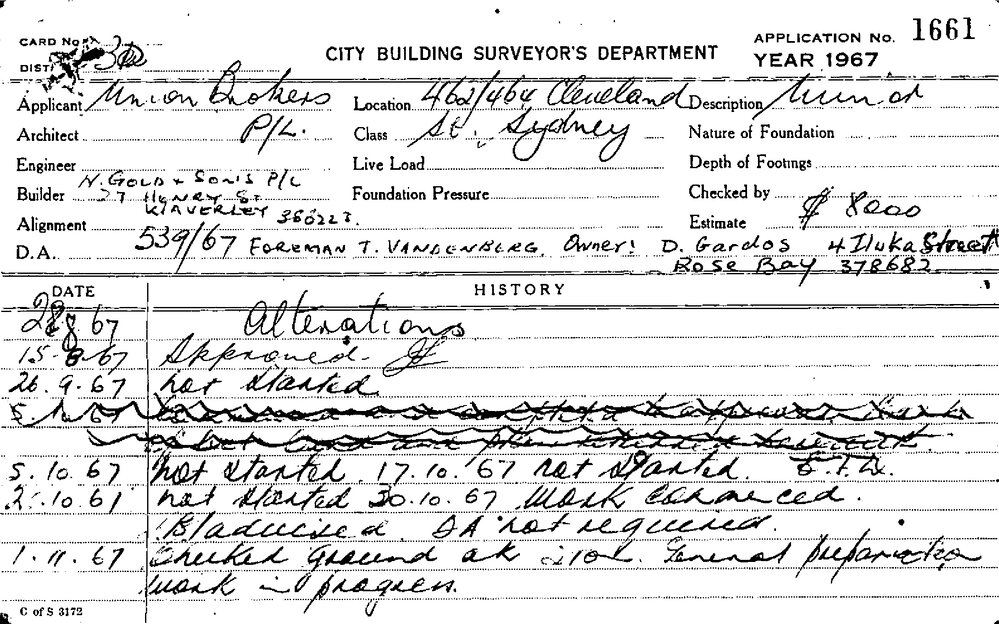 CARD No.
DIST. 3
CITY BUILDING SURVEYOR'S DEPARTMENT
APPLICATION No. 1661
YEAR 1967
Applicant Union Brokers Location 462/464 Cleveland Description Minor
Architect P/L. Class St. Sydney Nature of Foundation
Engineer Live Load Depth of Footings
Builder N. GOLD & SONS P/L Foundation Pressure Checked by
27 HENRY ST
WAVERLEY 386223.
Alignment Estimate $ 8000
D.A. 539/67 FOREMAN T. VANDENBERG. Owner: D. Gardos 4 Iluka Street
Rose Bay 378682.
DATE HISTORY
67 Alterations
15-8-67 Approved.
26.9.67 not started
5.10.67 not started. 17.10.'67 not started.
not started 30.10.67 Work commenced.
B/advised. DA not required.
1.11.67 Checked ground ok General preparation
work in progress.
C of S 3172